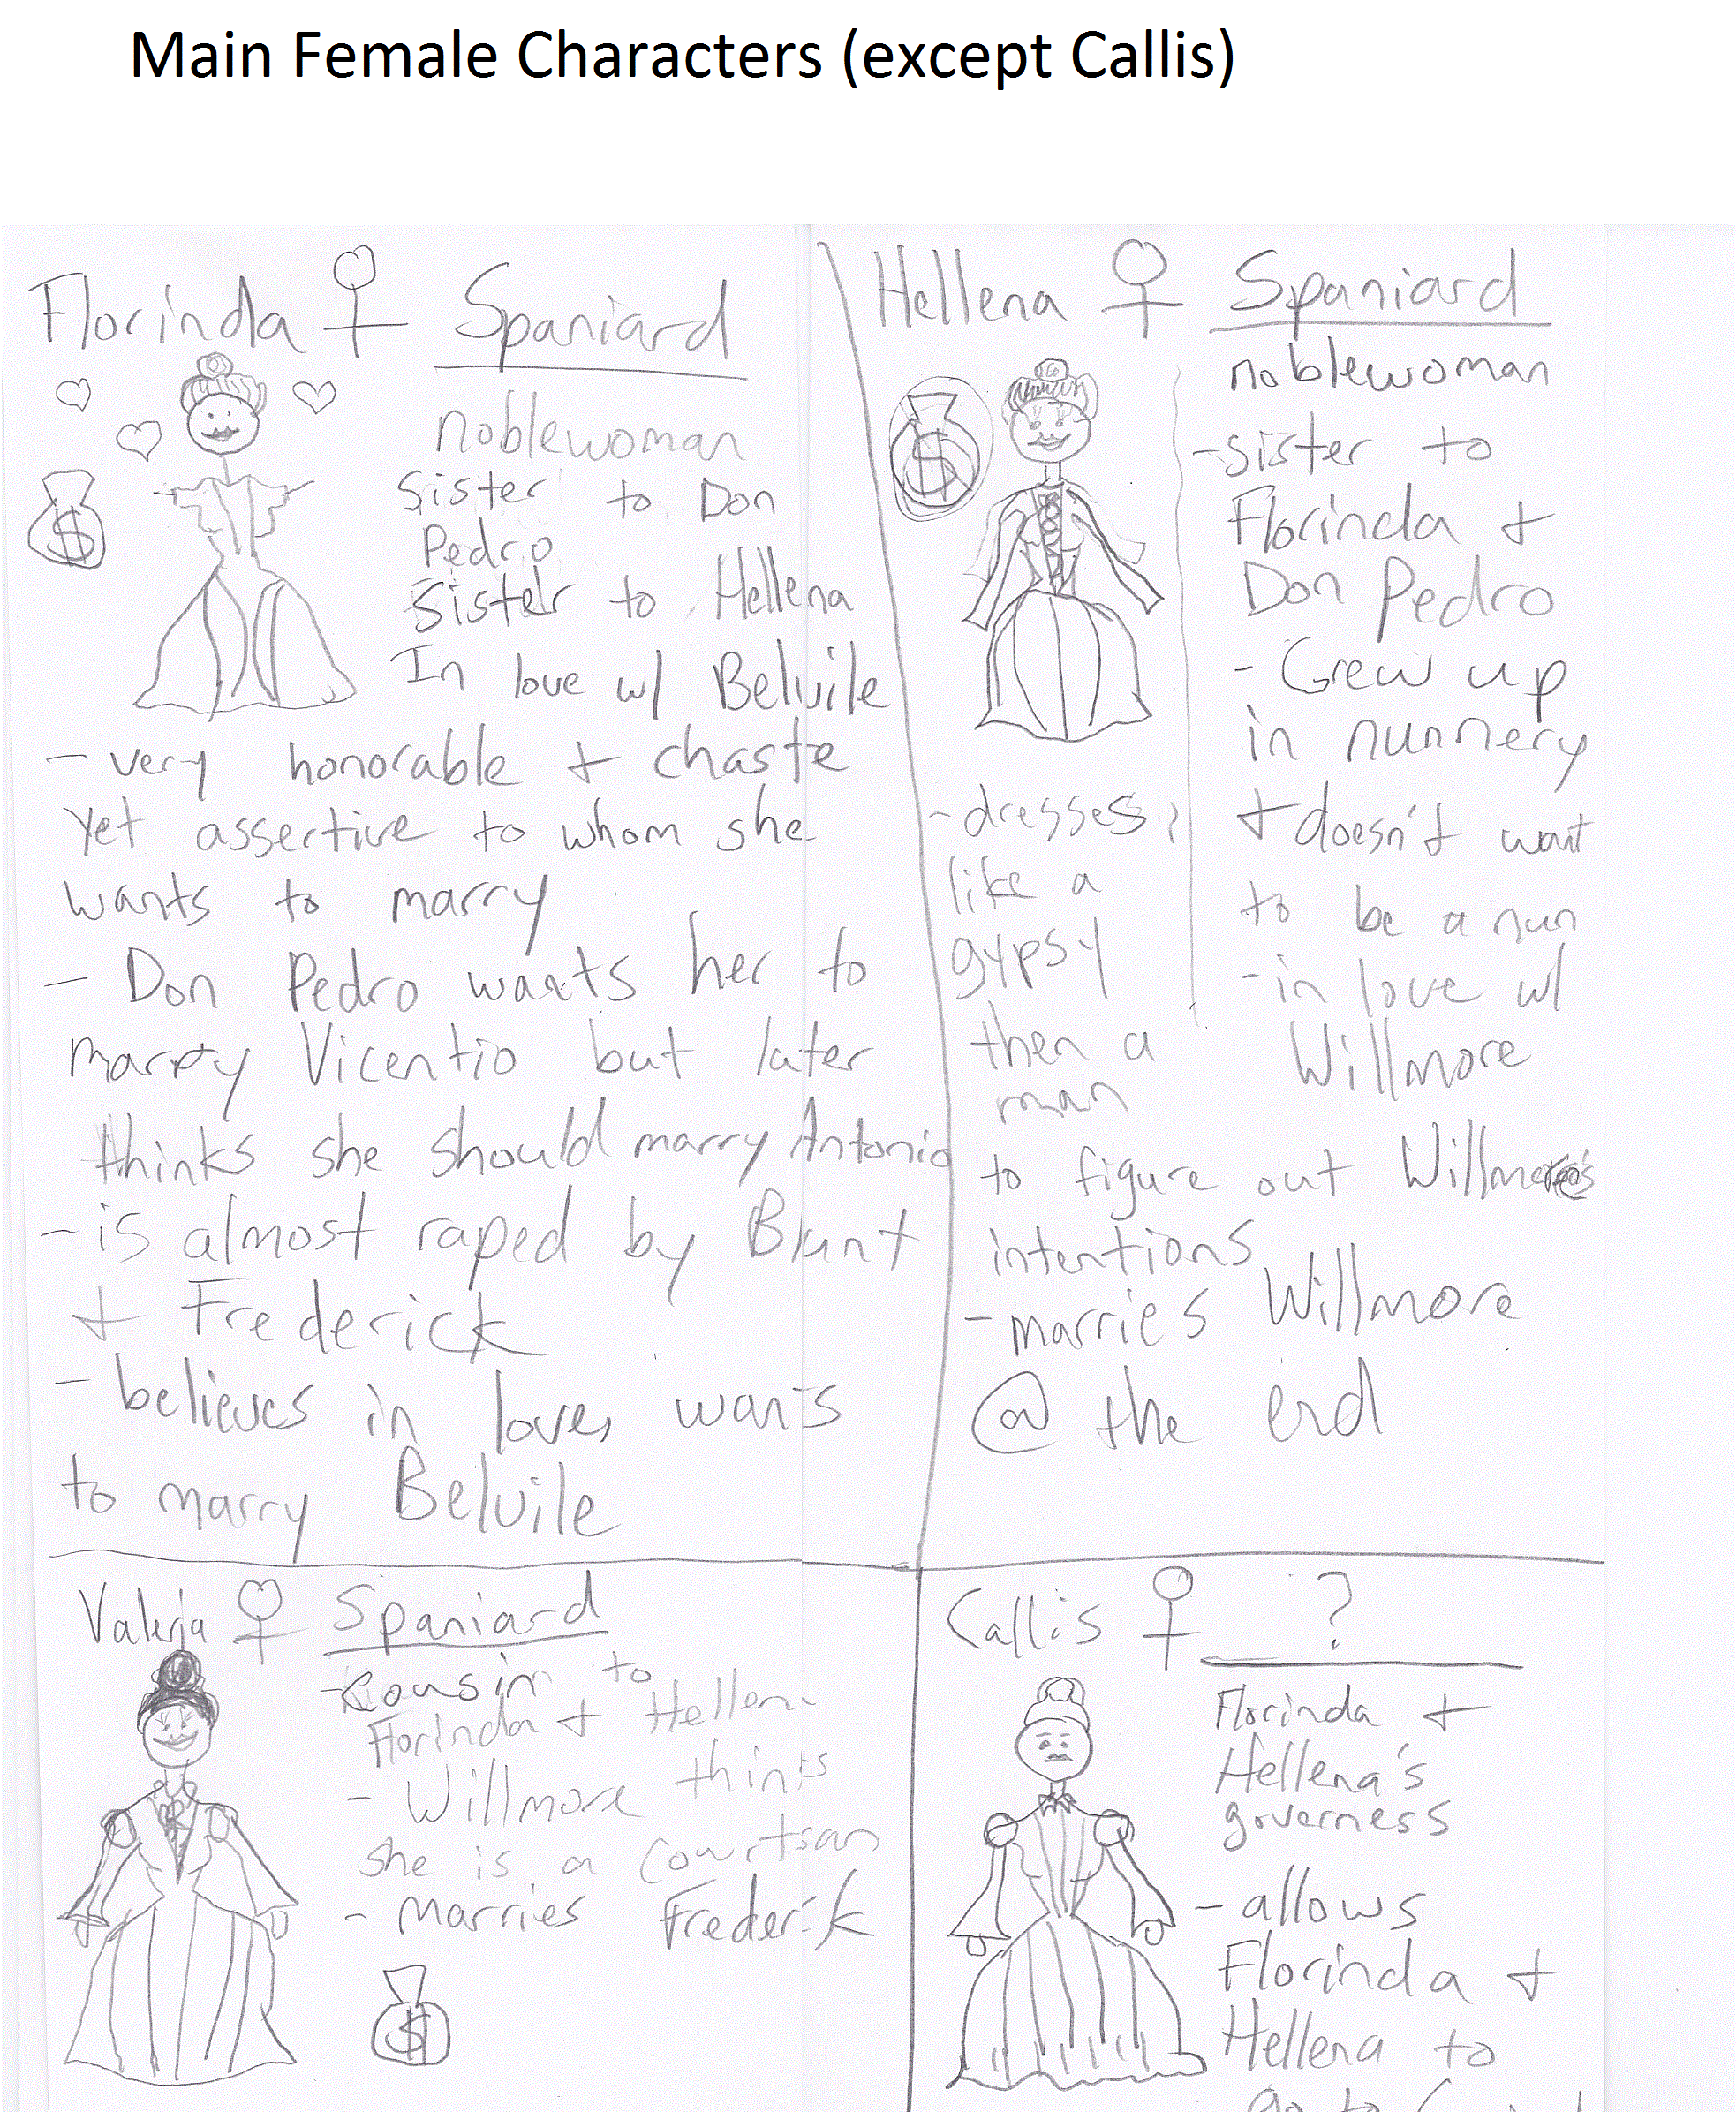 Main Female Characters (except Callis)
Florinda ♀ Spaniard
noblewoman
Sister to Don
Pedro
Sister to Hellena
In love w/ Belvile
- very honorable + chaste
yet assertive to whom she
wants to marry
- Don Pedro wants her to
marry Vicentio but later
thinks she should marry Antonio
- is almost raped by Blunt
+ Frederick
- believes in love, wants
to marry Belvile
Hellena ♀ Spaniard
noblewoman
- sister to
Florinda +
Don Pedro
- Grew up
in nunnery
+ doesn't want
to be a nun
- in love w/
Willmore
- dresses
like a
gypsy
then a
man
to figure out Willmore's
intentions
- marries Willmore
@ the end
Valeria ♀ Spaniard
- cousin to
Florinda + Hellena
- Willmore thinks
she is a courtsan
- marries Frederick
Callis ♀ ?
Florinda +
Hellena's
governess
- allows
Florinda +
Hellena to
go to